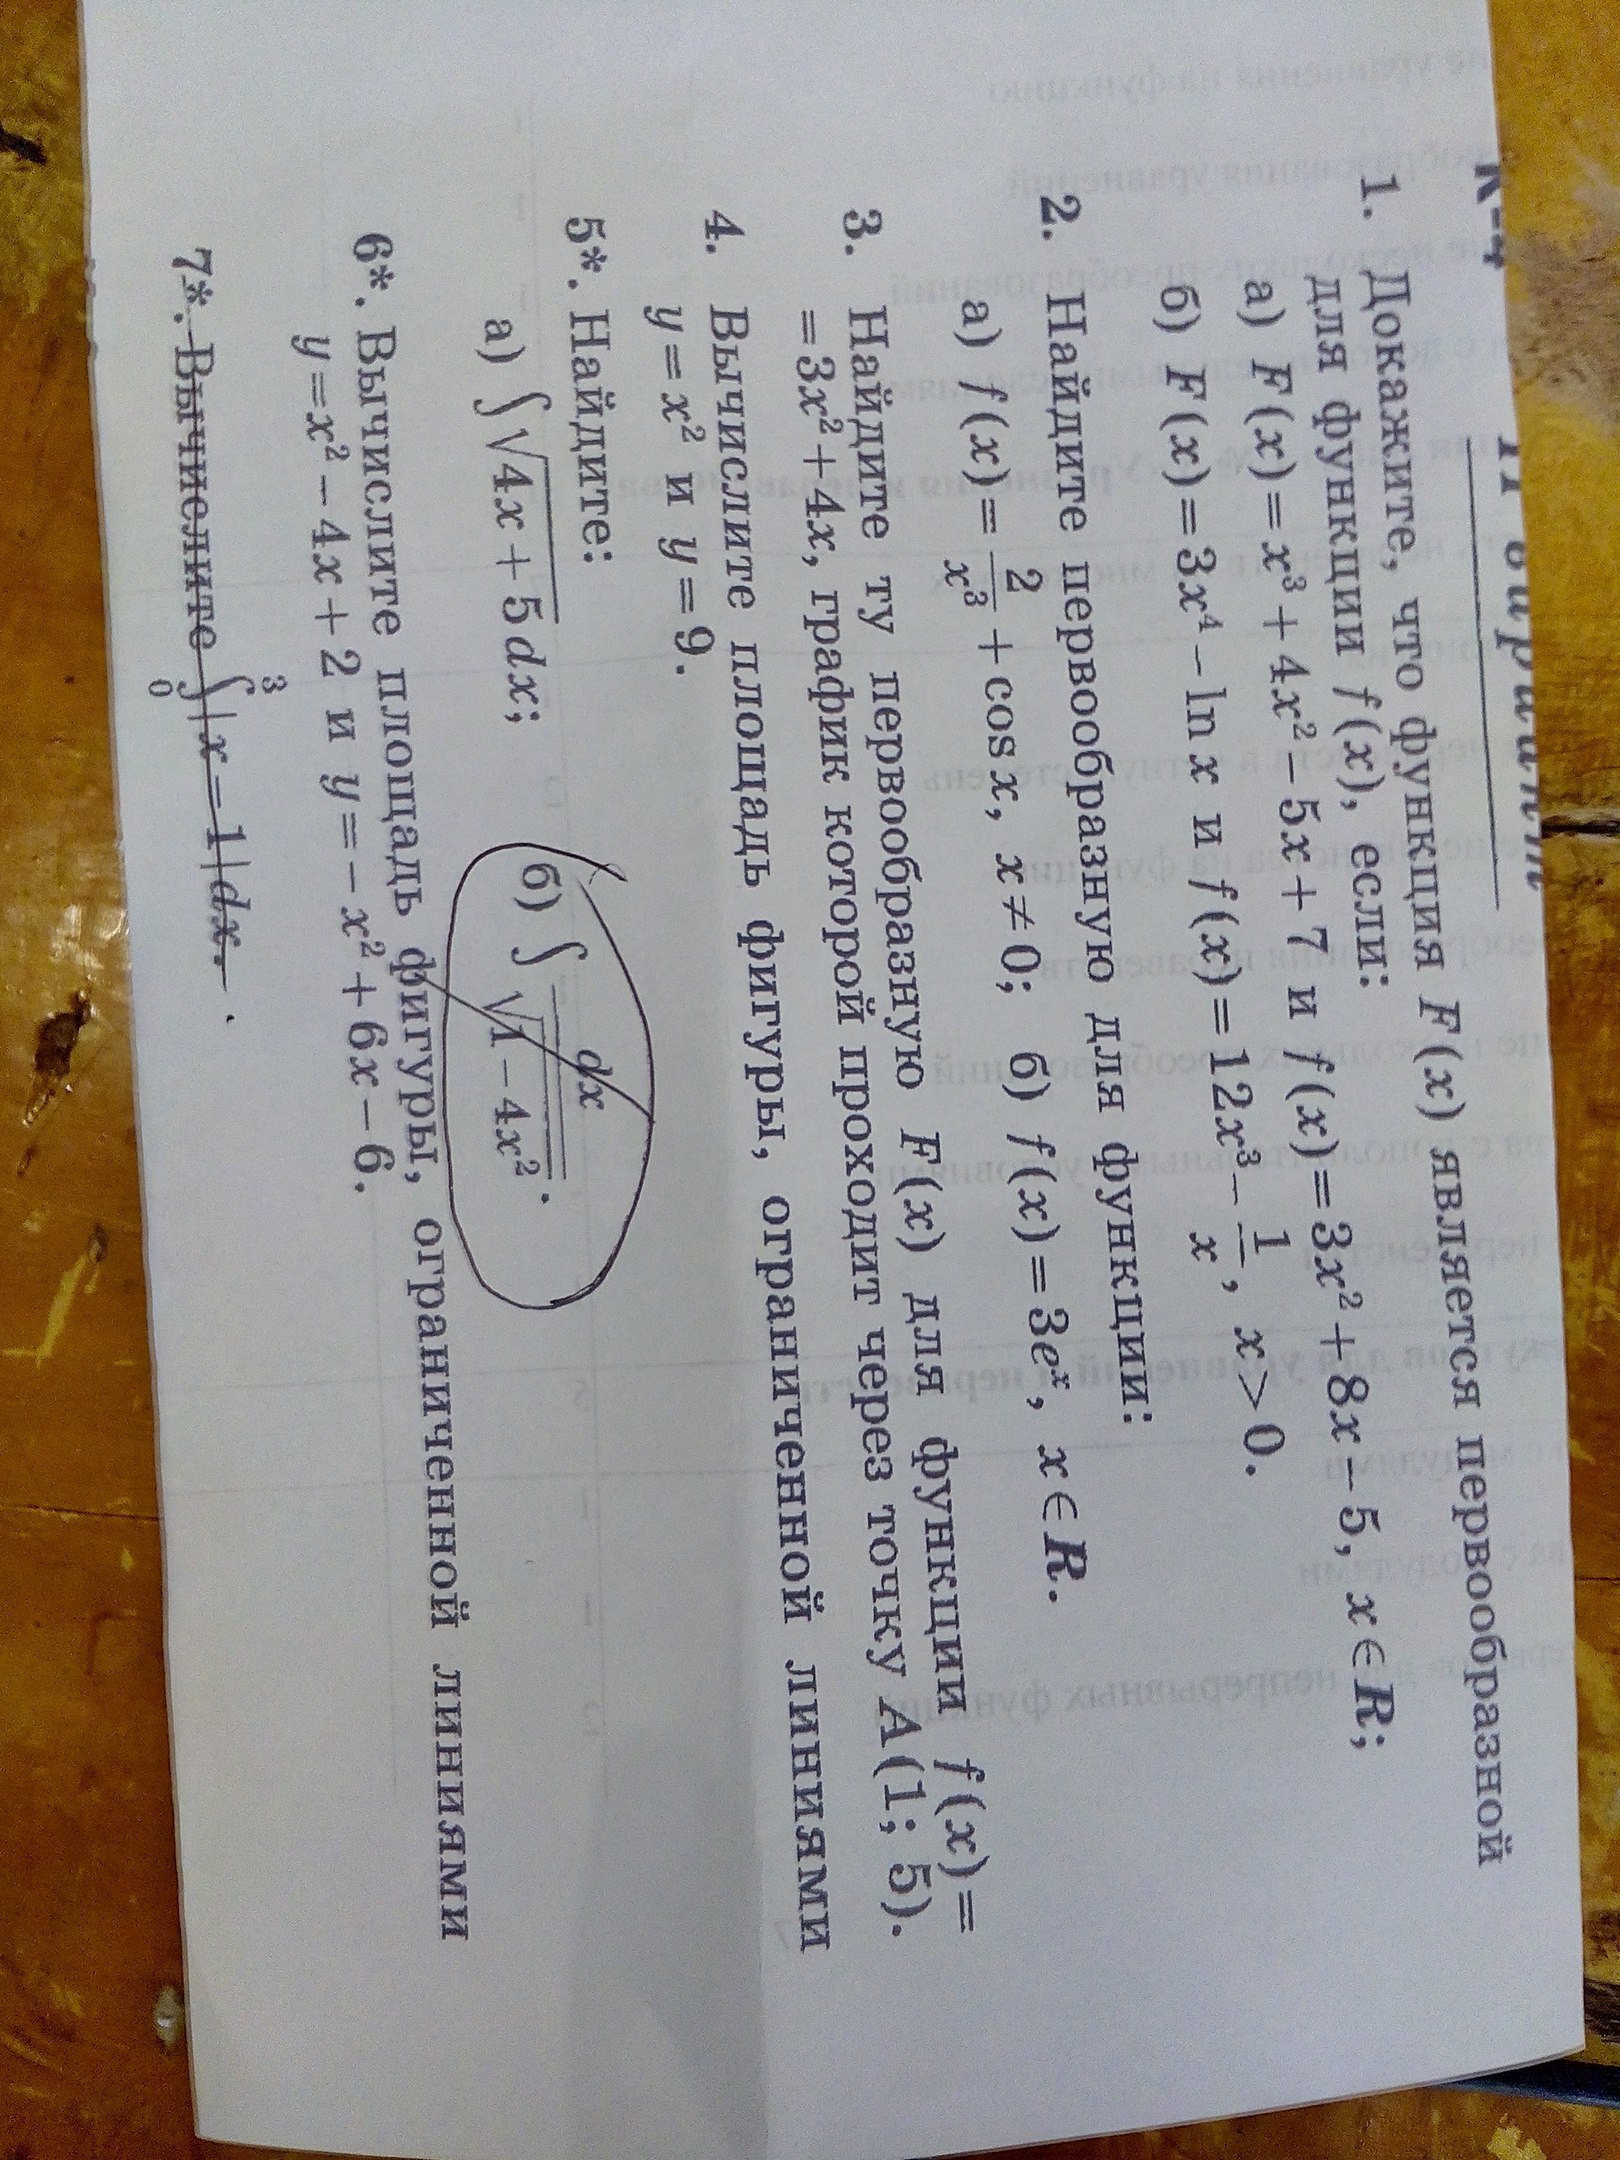 К-4
вариант
1. Докажите, что функция F(x) является первообразной
для функции f(x), если:
а) F(x)=x³+4x²−5x+7 и f(x)=3x²+8x−5, x∈R;
б) F(x)=3x⁴−ln x и f(x)=12x³−1/x, x>0.
2. Найдите первообразную для функции:
а) f(x)=2/x³+cos x, x≠0; б) f(x)=3eˣ, x∈R.
3. Найдите ту первообразную F(x) для функции f(x)=
=3x²+4x, график которой проходит через точку A(1; 5).
4. Вычислите площадь фигуры, ограниченной линиями
y=x² и y=9.
5*. Найдите:
а) ∫√(4x+5) dx; б) ∫dx/√(1−4x²).
6*. Вычислите площадь фигуры, ограниченной линиями
y=x²−4x+2 и y=−x²+6x−6.
7*. Вычислите ∫₀³|x−1|dx.